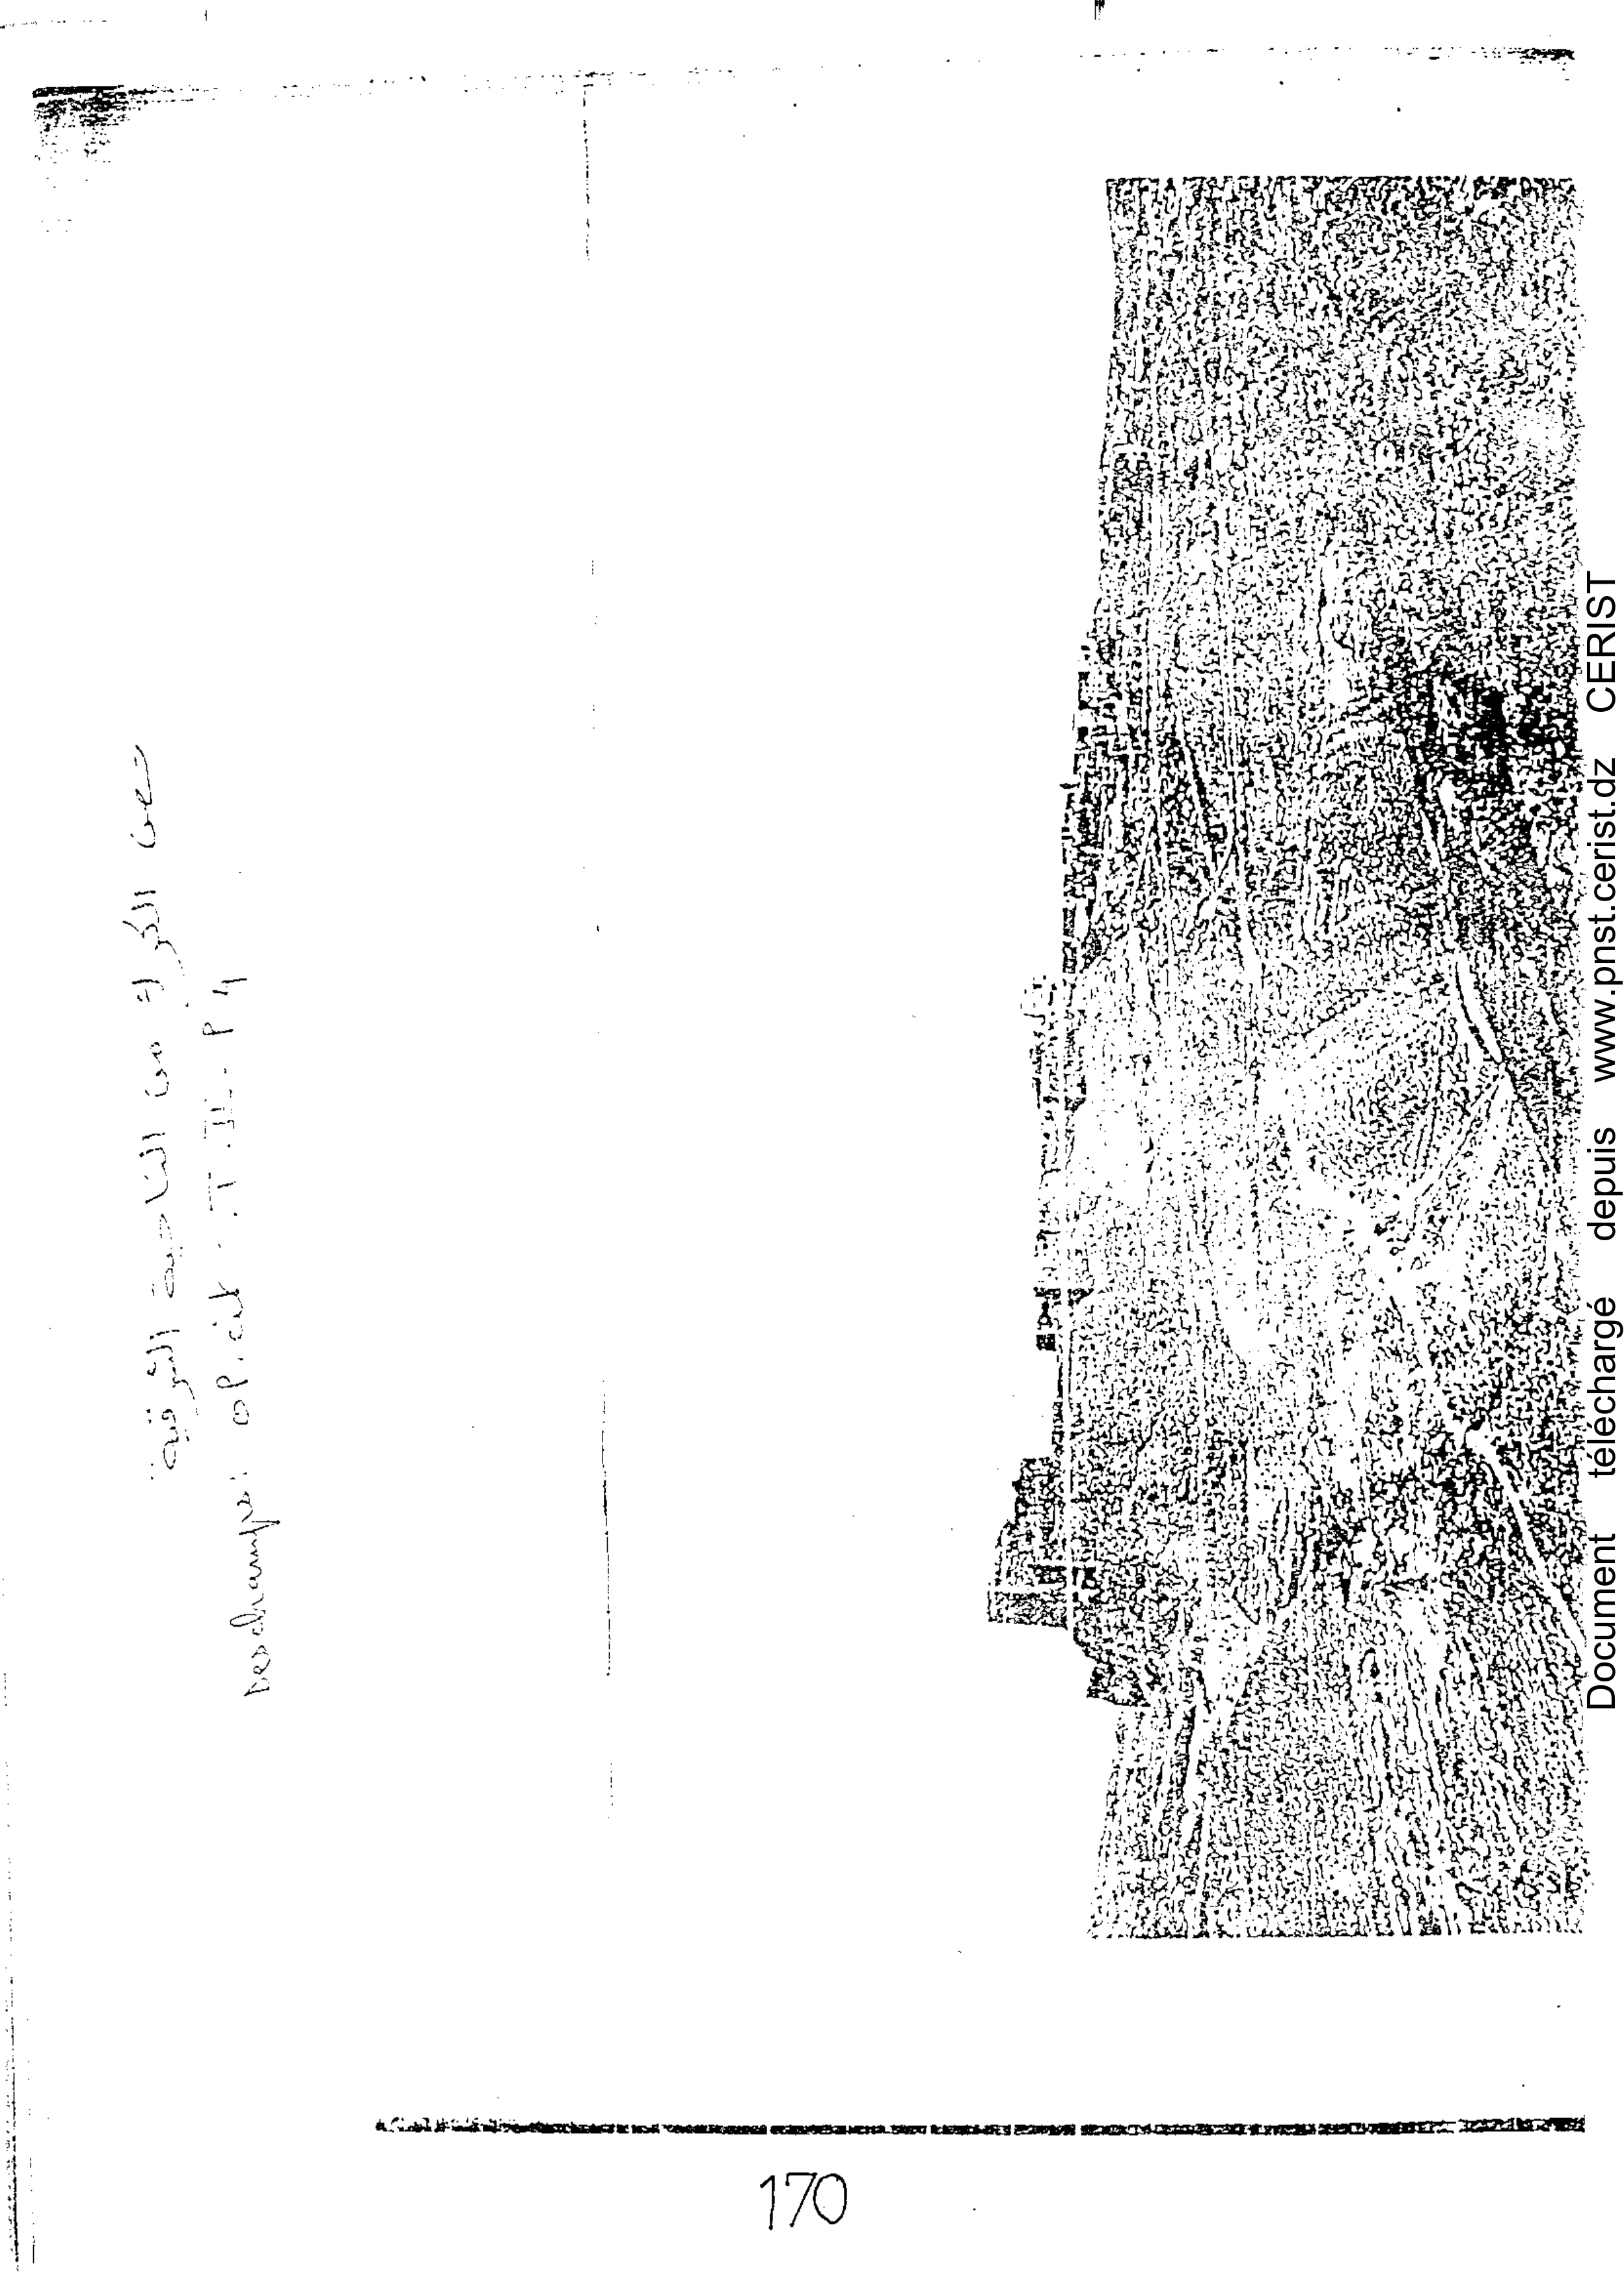 حصن الكرك من الناحية الشرقية
Deschamps: op.cit. T.II. P 4
170
Document téléchargé depuis www.pnst.cerist.dz CERIST